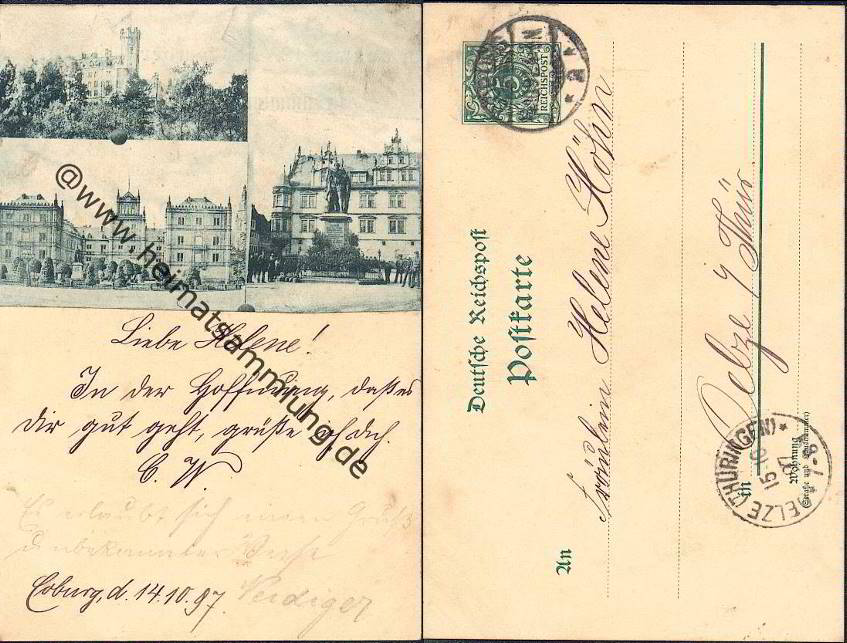 @www.heimatsammlung.de
Liebe Helene!
In der Hoffnung, daß es
Dir gut geht, grüße ich dich.
C. W.
Es erlaubt sich einen Gruß
unbekannter Weise
Coburg, d. 14.10.97.
Deutsche Reichspost
Postkarte
5
REICHSPOST
An
Fräulein Helene Höhn
in
Oelze i/Thür
Wohnung
(Straße und Hausnummer)
OELZE (THÜRINGEN)
15 10
97
7-8